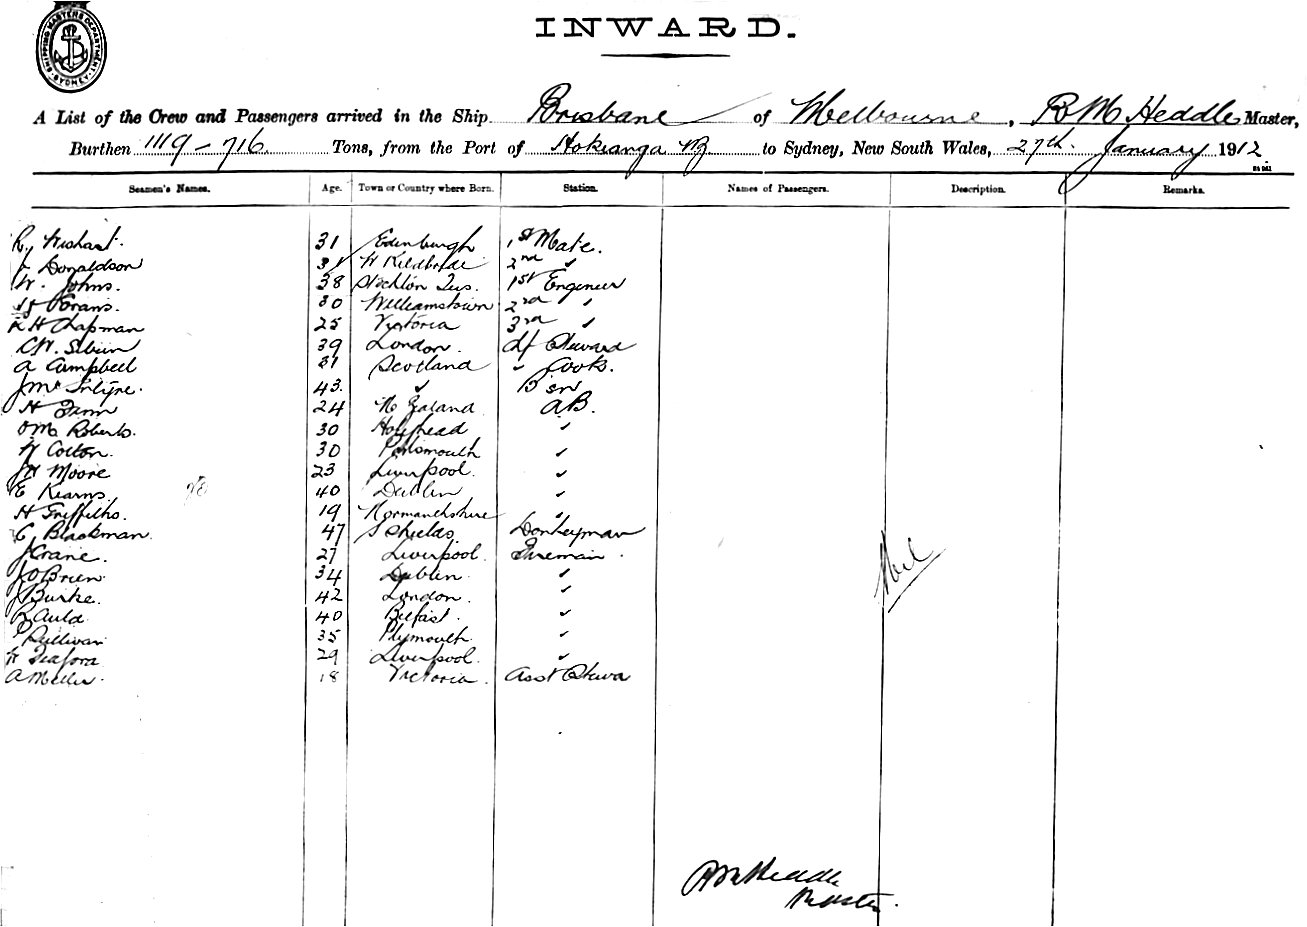 SHIPPING MASTERS DEPARTMENT SYDNEY
INWARD.
A List of the Crew and Passengers arrived in the Ship Brisbane of Melbourne, R M Heddle Master,
Burthen 1119 - 716 Tons, from the Port of Hokianga NZ to Sydney, New South Wales, 27th January 1912
Seamen's Names. Age. Town or Country where Born. Station. Names of Passengers. Description. Remarks.
R Wishart. 31 Edinburgh 1st Mate.
Donaldson 31 W Kildbride 2nd "
W. Johns. 38 Stockton Tees. 1st Engineer
Evans. 30 Williamstown 2nd "
H Chapman 25 Victoria 3rd "
C W. 39 London. Ch Steward
A Campbell 31 Scotland " Cook.
J Mc Intyre. 43. " B'sn
H 24 N Zealand AB.
O M Roberts. 30 Holyhead "
W Cotton. 30 Portsmouth "
J H Moore 23 Liverpool. "
E Kearns. 40 Dublin "
H Griffiths. 19 Monmouthshire "
C Blackman. 47 S Shields Donkeyman
J Crane. 27 Liverpool. Fireman.
J O'Brien 34 Dublin. "
J Burke. 42 London. "
R Auld 40 Belfast. "
P Sullivan 35 Plymouth "
29 Liverpool. "
A 18 Victoria. Asst Stewd
Nil
R M Heddle
Master.